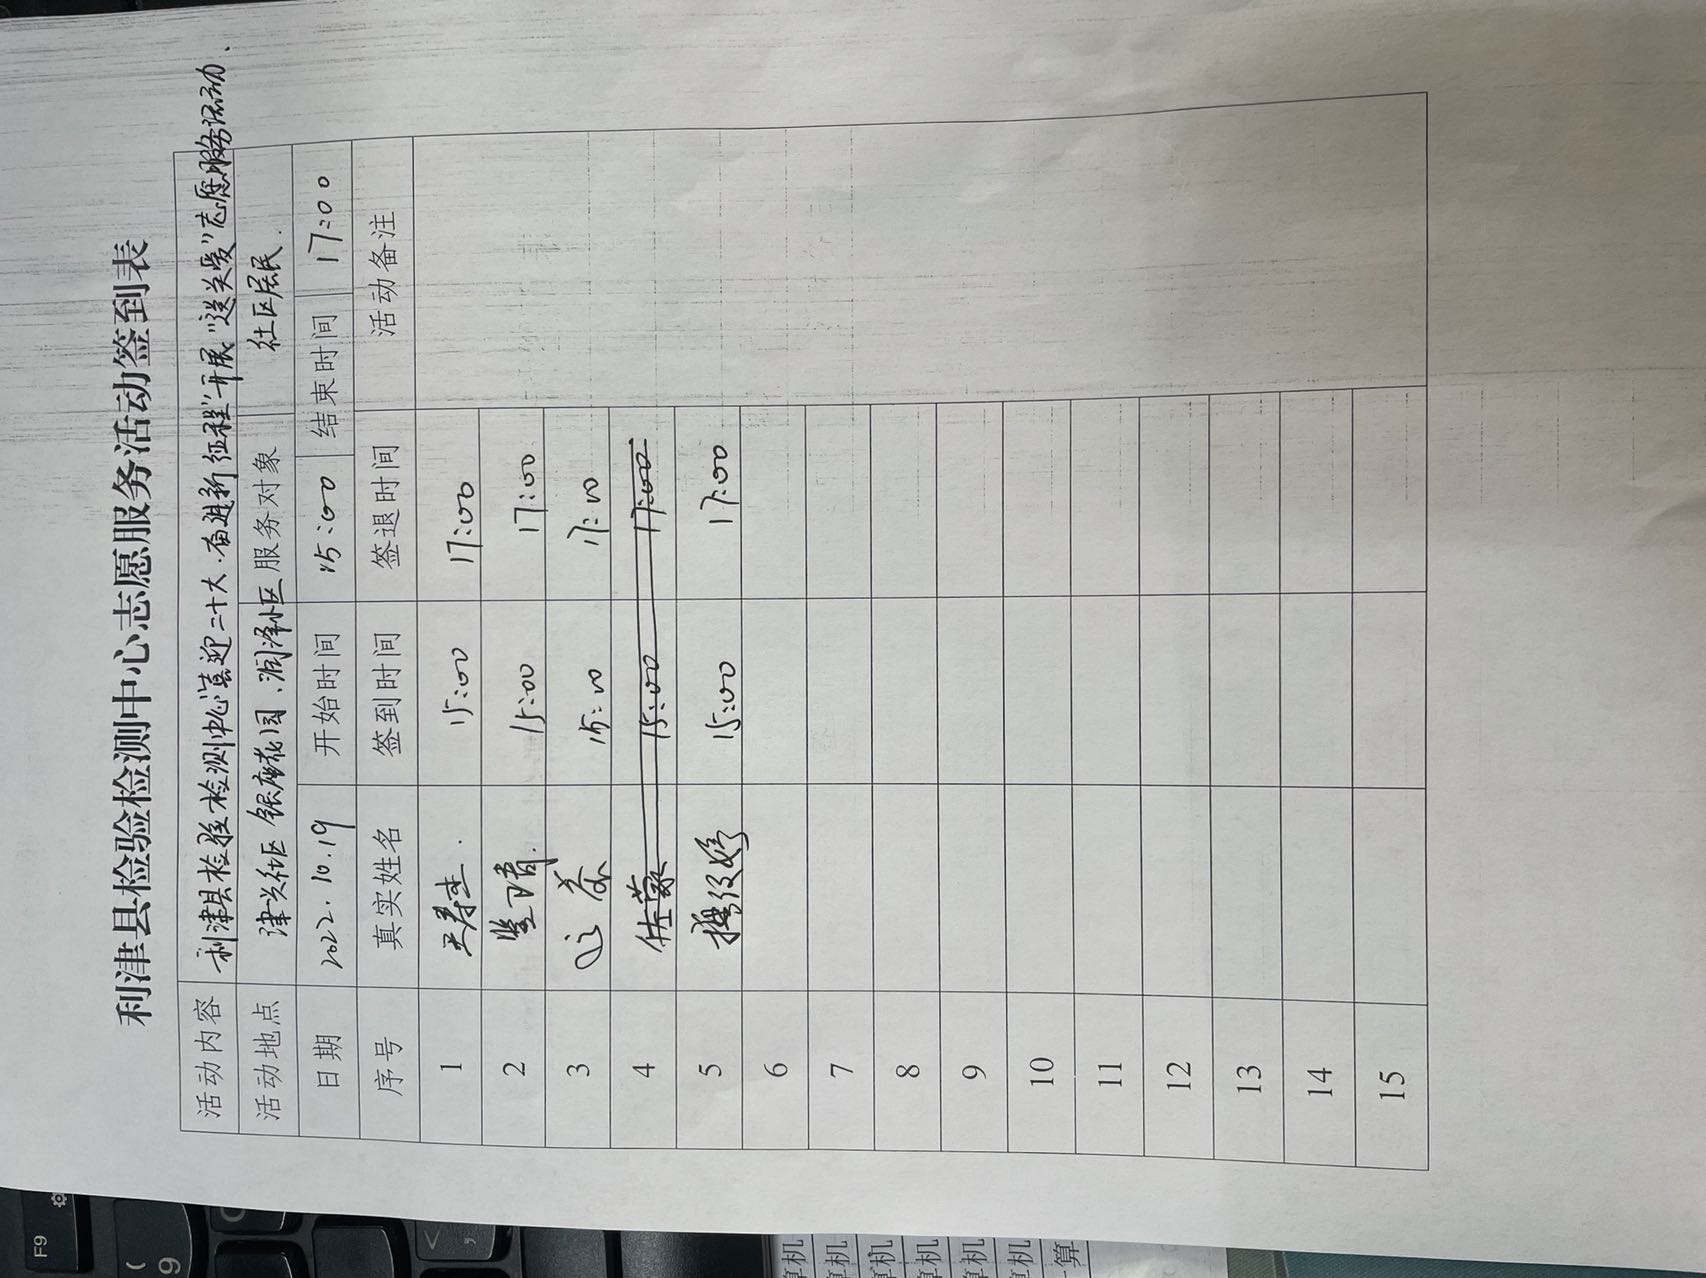 利津县检验检测中心志愿服务活动签到表
活动内容 利津县检验检测中心"喜迎二十大·奋进新征程"开展"送关爱"志愿服务活动.
活动地点 津兴社区 银座花园、润泽小区 服务对象 社区居民.
日期 2022.10.19 开始时间 15:00 结束时间 17:00
序号 真实姓名 签到时间 签退时间 活动备注
1 15:00 17:00
2 15:00 17:00
3 15:00 17:00
4 15:00 17:00
5 15:00 17:00
6
7
8
9
10
11
12
13
14
15
F9
(
9